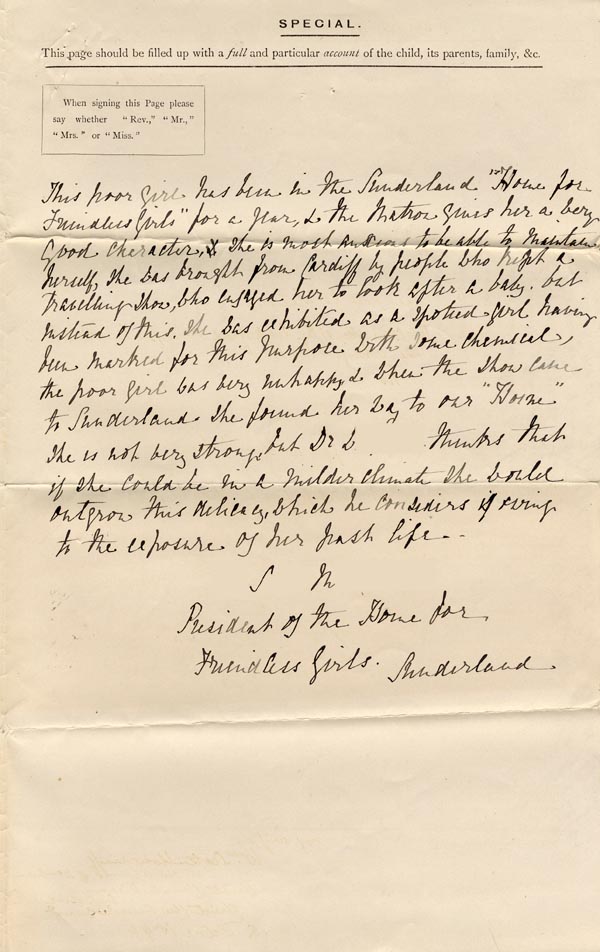 SPECIAL.
This page should be filled up with a full and particular account of the child, its parents, family, &c.
When signing this Page please
say whether "Rev.," "Mr.,"
"Mrs." or "Miss."
This poor girl has been in the Sunderland "Home for
Friendless Girls" for a year, & the Matron gives her a very
good character, & She is most anxious to be able to maintain
herself, She was brought from Cardiff by people who kept a
travelling show, who engaged her to look after a baby. but
instead of this, she was exhibited as a spotted girl having
been marked for this purpose with some chemical,
the poor girl was very unhappy & when the show came
to Sunderland She found her way to our "Home"
She is not very strong, but Dr L thinks that
if she could be in a milder climate she would
outgrow this delicacy, which he considers is owing
to the exposure of her past life -
S M
President of the Home for
Friendless Girls. Sunderland